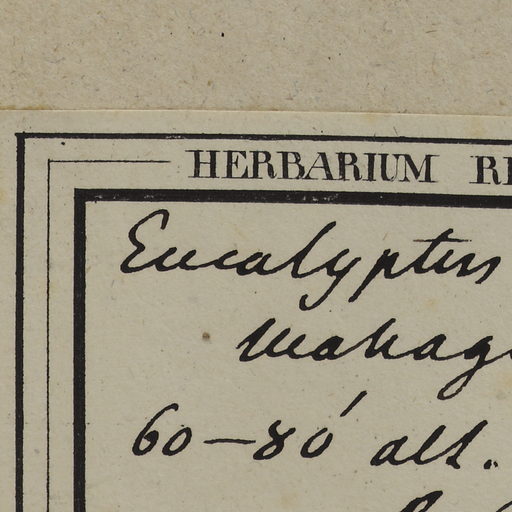 HERBARIUM
Eucalyptus
Mahag
60–80' alt.